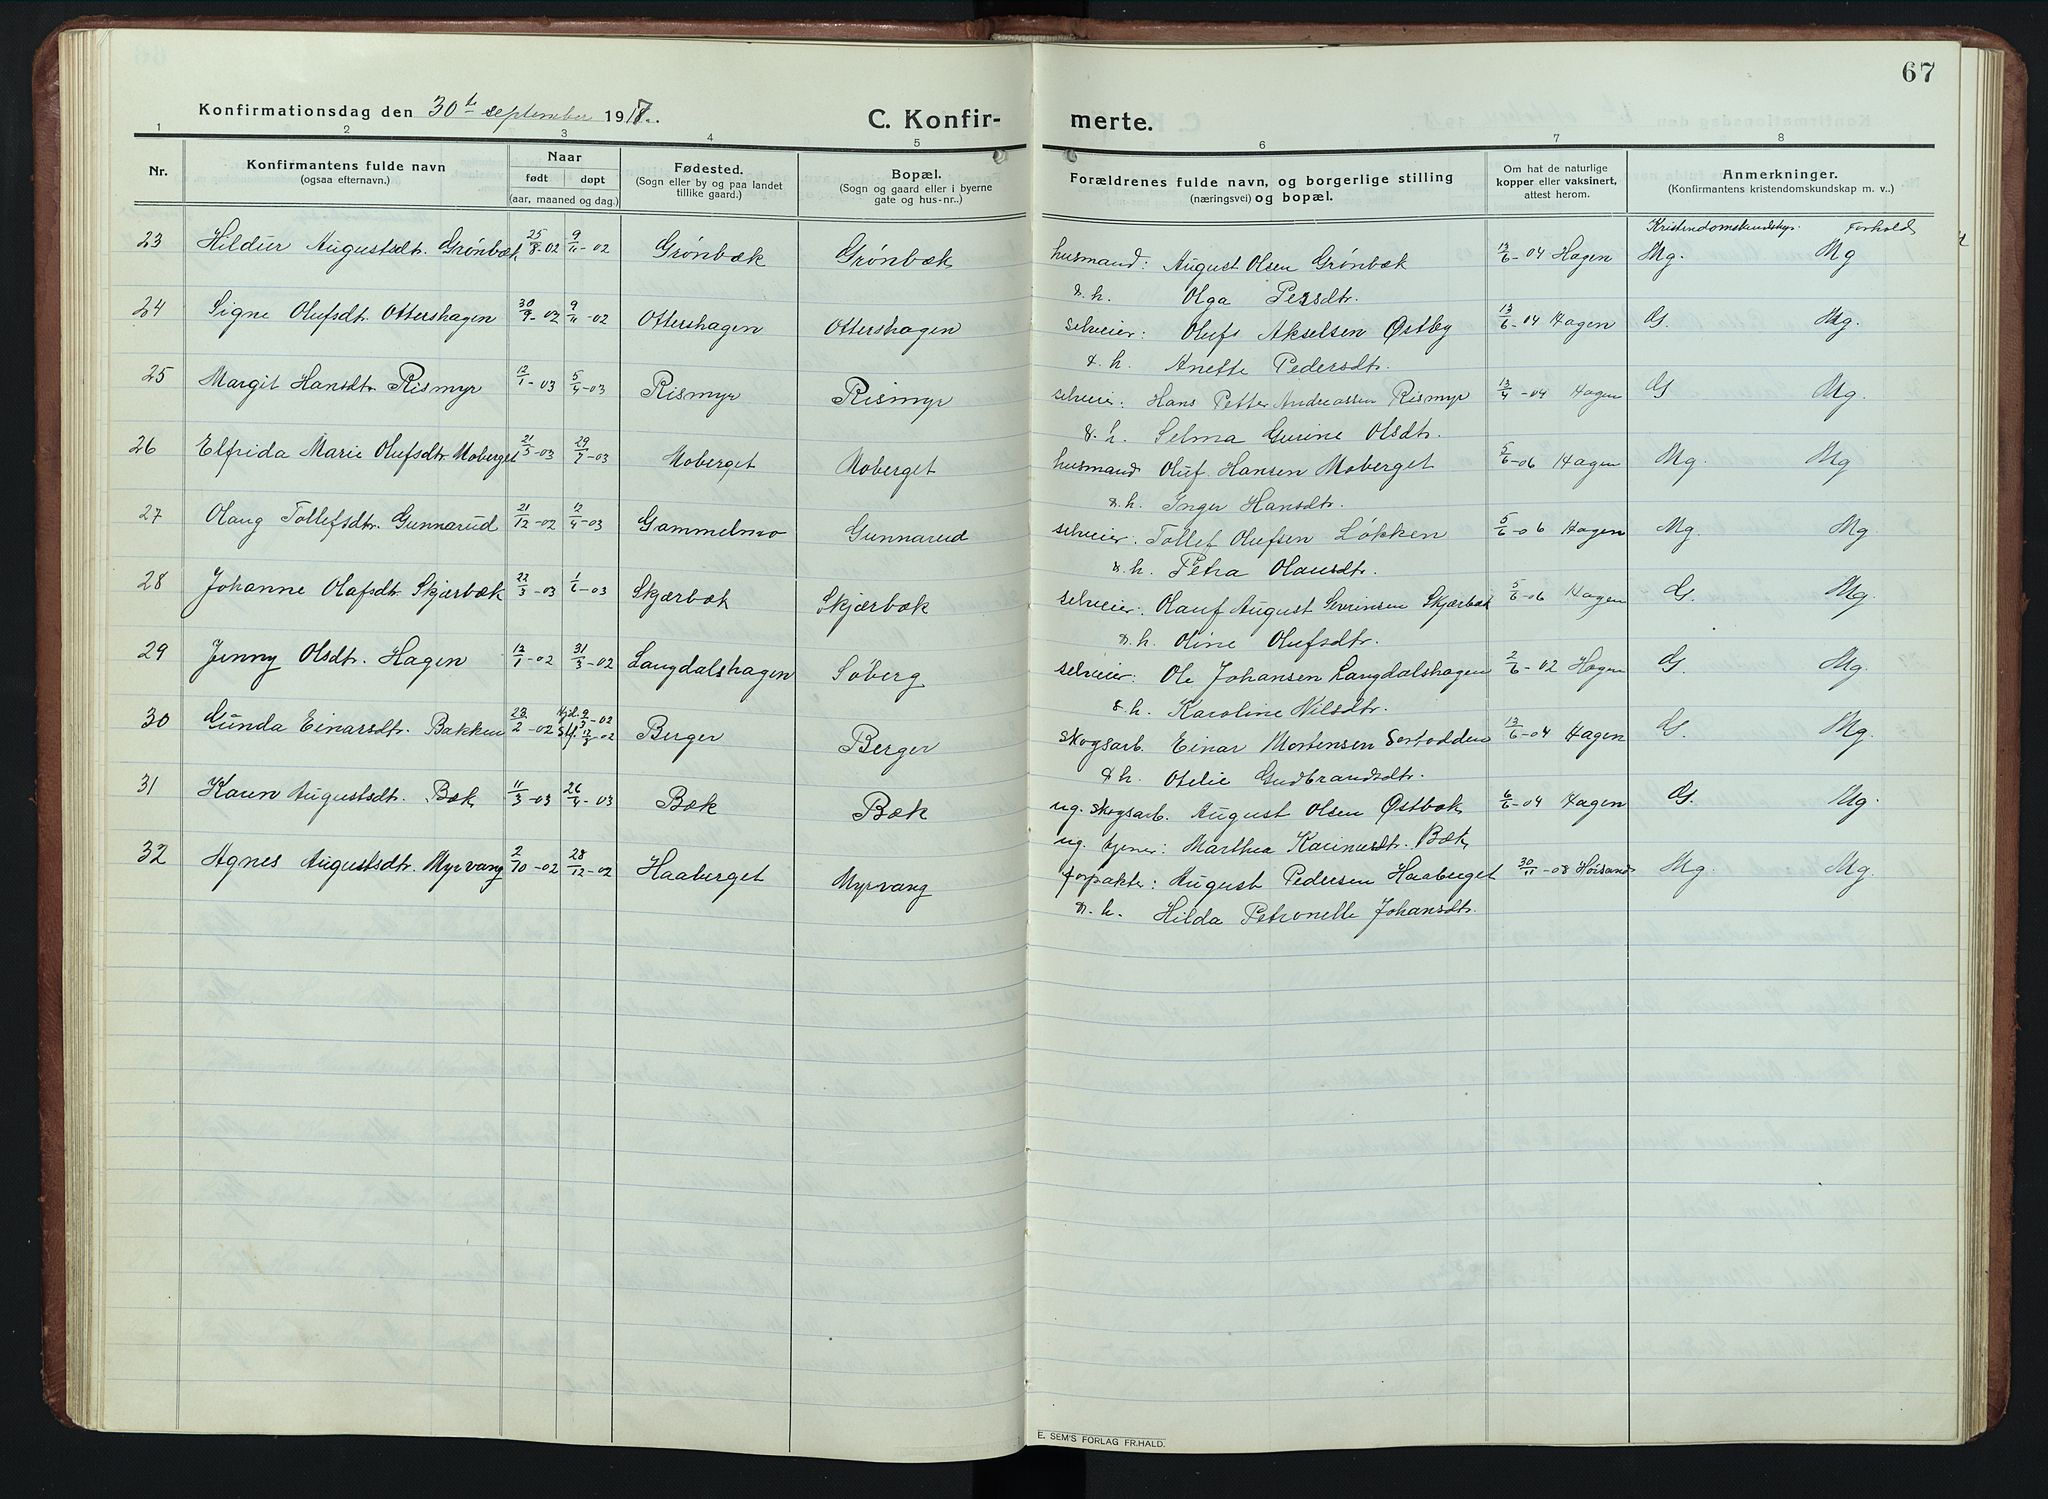 67
Konfirmationsdag den 30te september 1917.
C. Konfir- merte.
1 2 3 4 5 6 7 8
Nr.
Konfirmantens fulde navn
(ogsaa efternavn.)
Naar
født døpt
(aar, maaned og dag.)
Fødested.
(Sogn eller by og paa landet
tillike gaard.)
Bopæl.
(Sogn og gaard eller i byerne
gate og hus-nr..)
Forældrenes fulde navn, og borgerlige stilling
(næringsvei) og bopæl.
Om hat de naturlige
kopper eller vaksinert,
attest herom.
Anmerkninger.
(Konfirmantens kristendomskundskap m. v..)
Kristendomskundskap. Forhold
23 Hildur Augustsdtr. Grönbæk 25/8-02 9/11-02 Grönbæk Grönbæk husmand: August Olsen Grönbæk 13/6-04 Hagen Mg. Mg
& h. Olga Persdtr.
24 Signe Olufsdtr. Ottershagen 30/9-02 9/11-02 Ottershagen Ottershagen selveier: Olufs Akselsen Østby 13/6-04 Hagen G. Mg.
& h. Anette Pedersdtr.
25 Margit Hansdtr. Rismyr 12/1-03 5/4-03 Rismyr Rismyr selveier: Hans Petter Andreassen Rismyr 13/4-04 Hagen G Mg.
& h. Selma Gurine Olsdtr.
26 Elfrida Marie Olufsdtr. Moberget 21/5-03 29/7-03 Moberget Moberget husmand Oluf Hansen Moberget 5/6-06 Hagen Mg. Mg
& h. Inger Hansdtr.
27 Olaug Tollefsdtr. Gunnarud 21/12-02 12/4-03 Gammelmo Gunnarud selveier. Tollef Olufsen Løkken 5/6-06 Hagen Mg. Mg
& h. Petra Olausdtr.
28 Johanne Olafsdtr. Skjærbæk 22/3-03 1/6-03 Skjærbæk Skjærbæk selveier: Olauf August Sevrinsen Skjærbæk 5/6-06 Hagen G. Mg.
& h. Oline Olufsdtr.
29 Jenny Olsdtr. Hagen 12/1-02 31/3-02 Langdalshagen Söberg selveier: Ole Johansen Langdalshagen 2/6-02 Hagen G. Mg.
& h. Karoline Nilsdtr.
30 Gunda Einarsdtr. Bakken 23/2-02 Hjd. 9/3-02 Stf. 17/8-02 Berger Berger skogsarb. Einar Mortensen Sortodden 13/6-04 Hagen G. Mg.
& h. Otelie Gudbrandsdtr.
31 Karen Augustsdtr. Bæk 11/3-03 26/4-03 Bæk Bæk ug. skogsarb. August Olsen Østbæk, 6/6-04 Hagen G. Mg.
ug. tjener: Marthea Karinusdtr. Bæk,
32 Agnes Augustsdtr. Myrvang 2/10-02 28/12-02 Haaberget Myrvang forpakter: August Pedersen Haaberget 30/11-08 Hörsand Mg. Mg
& h. Hilda Petronelle Johansdtr.
E. SEM'S FORLAG FR.HALD.